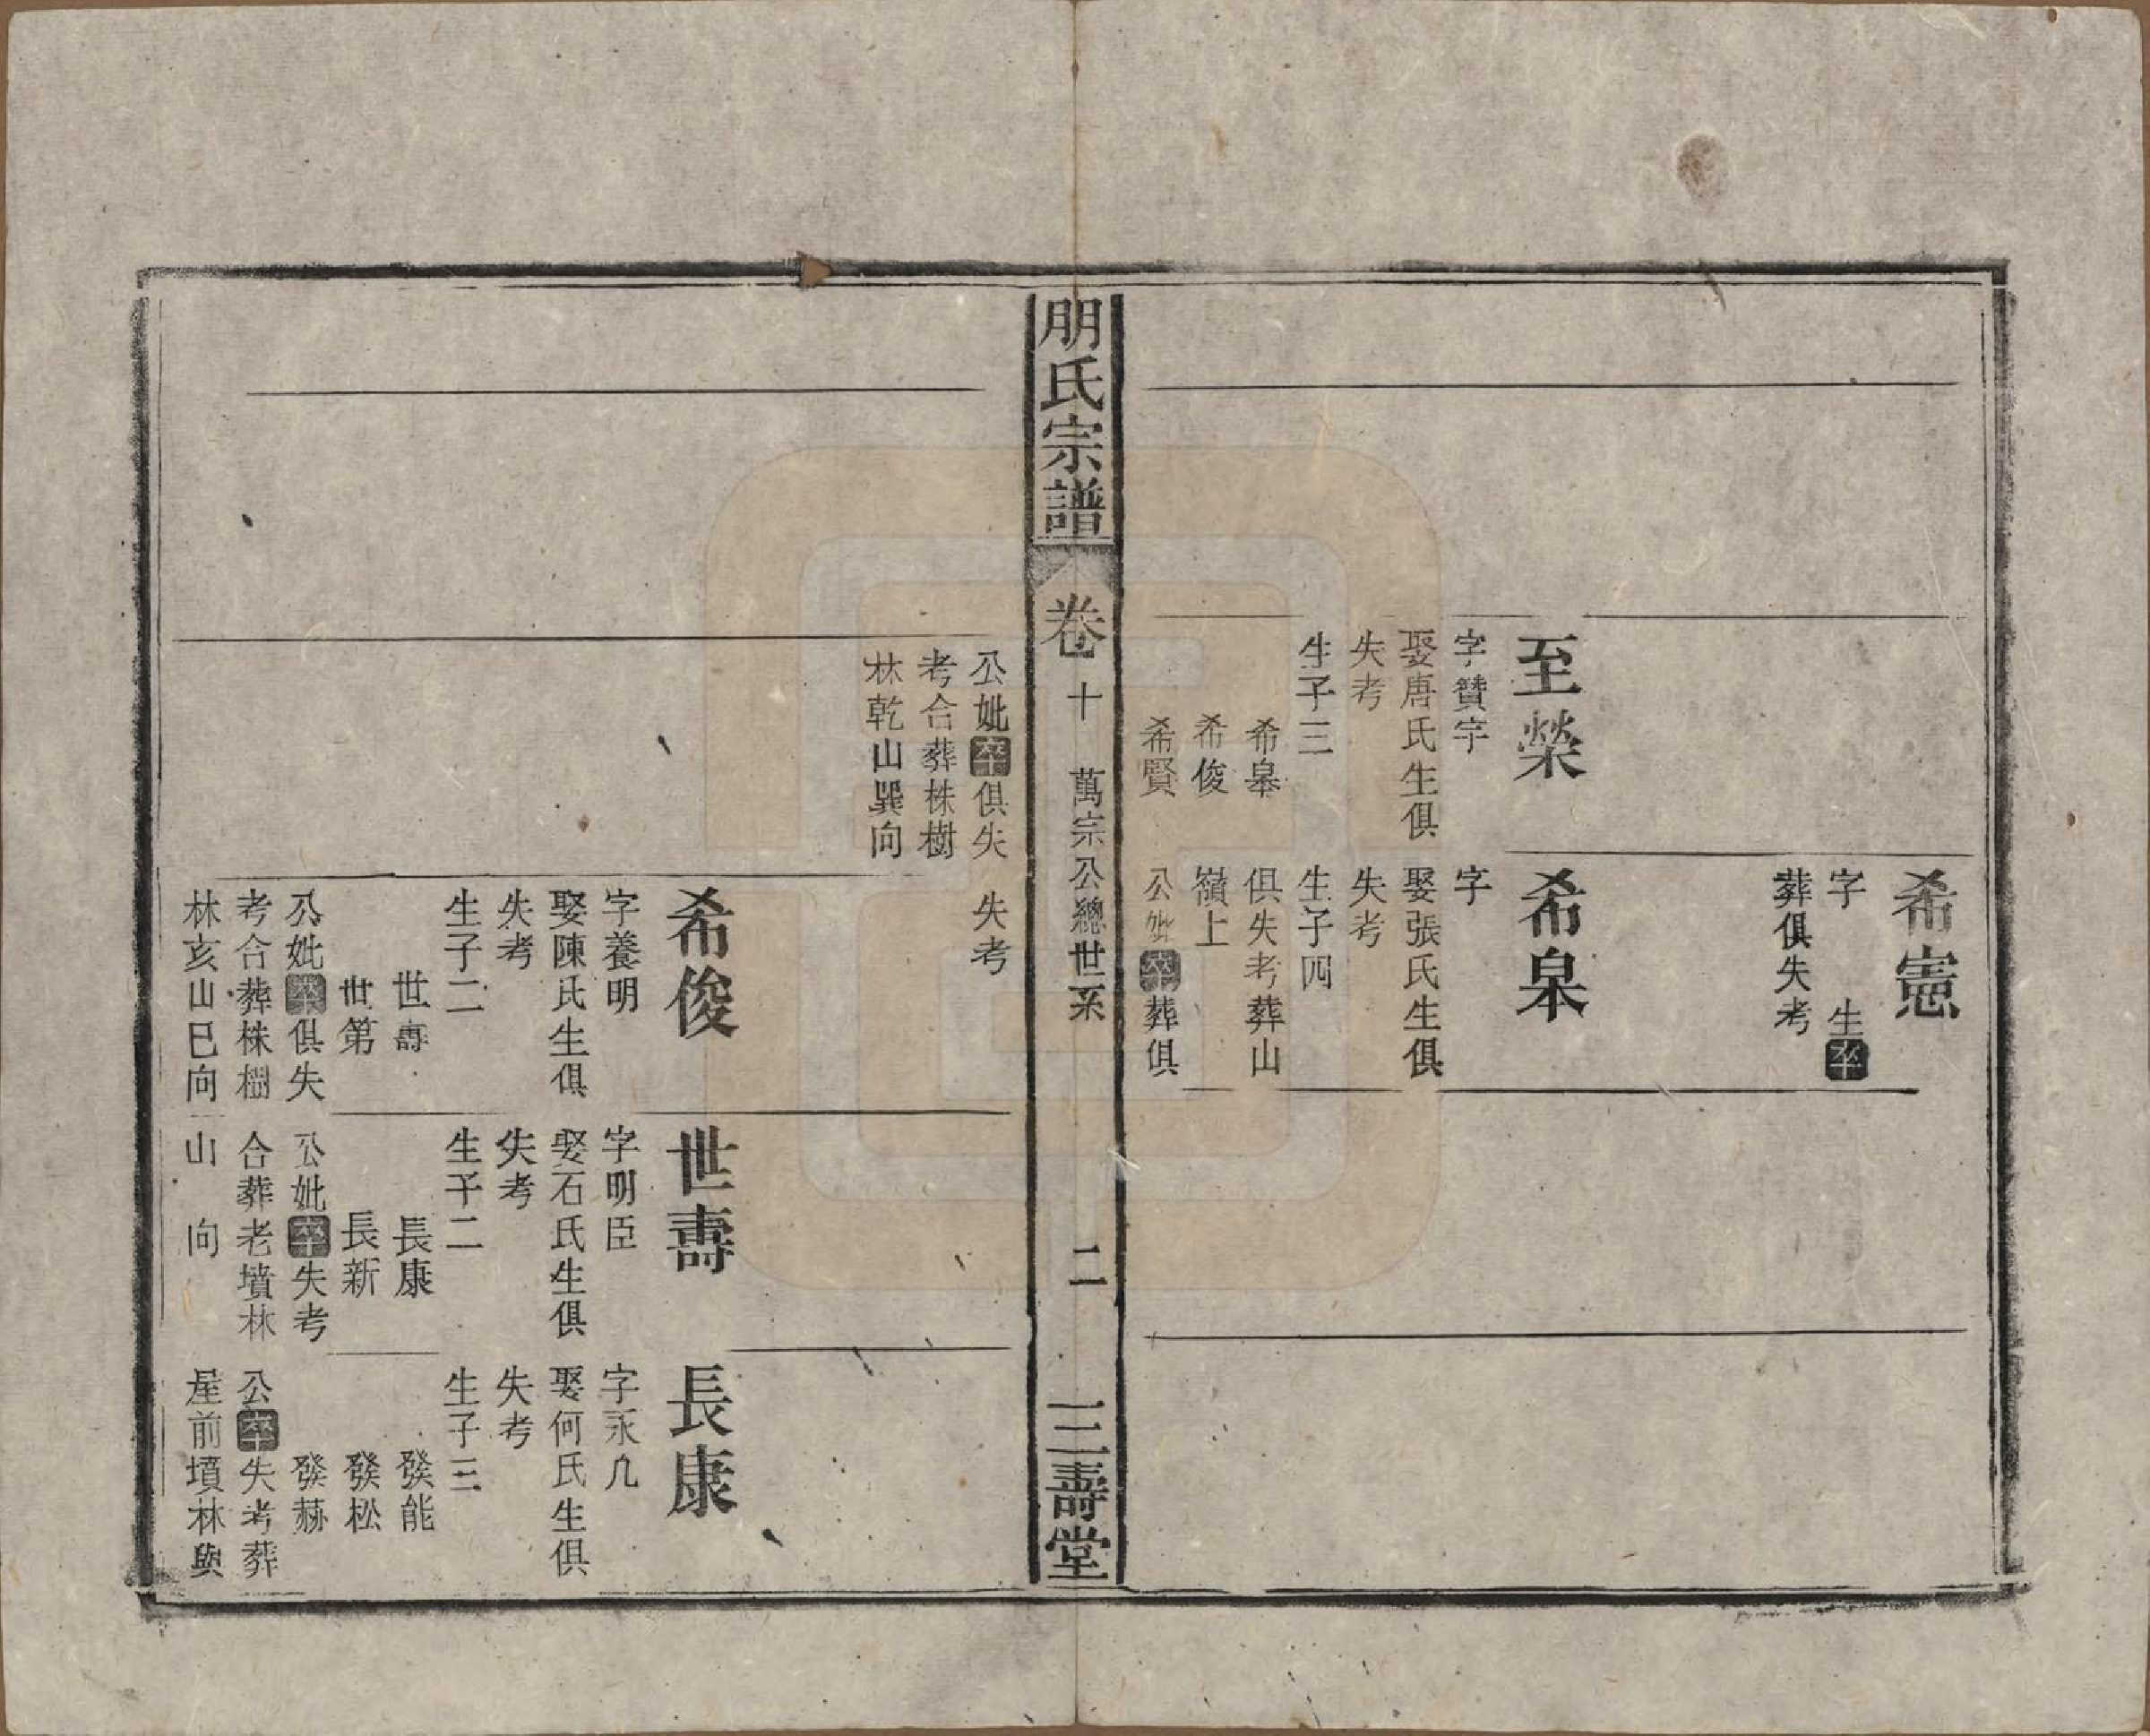 希憲
字　　生卒
葬俱失考
至榮
字贊宇
娶唐氏生俱
失考
生子三
希皋
希俊
希賢
希皋
字
娶張氏生俱
失考
生子四
俱失考葬山
嶺上
公妣卒葬俱
朋氏宗譜
卷十
萬宗公總世系
二
三壽堂
公妣俱失
考合葬株樹
林乾山巽向
失考
希俊
字養明
娶陳氏生俱
失考
生子二
世壽
世第
公妣俱失
考合葬株樹
林亥山巳向
世壽
字明臣
娶石氏生俱
失考
生子二
長康
長新
公妣失考
合葬老墳林
山　向
長康
字永九
娶何氏生俱
失考
生子三
發能
發松
發赫
公失考葬
屋前墳林與